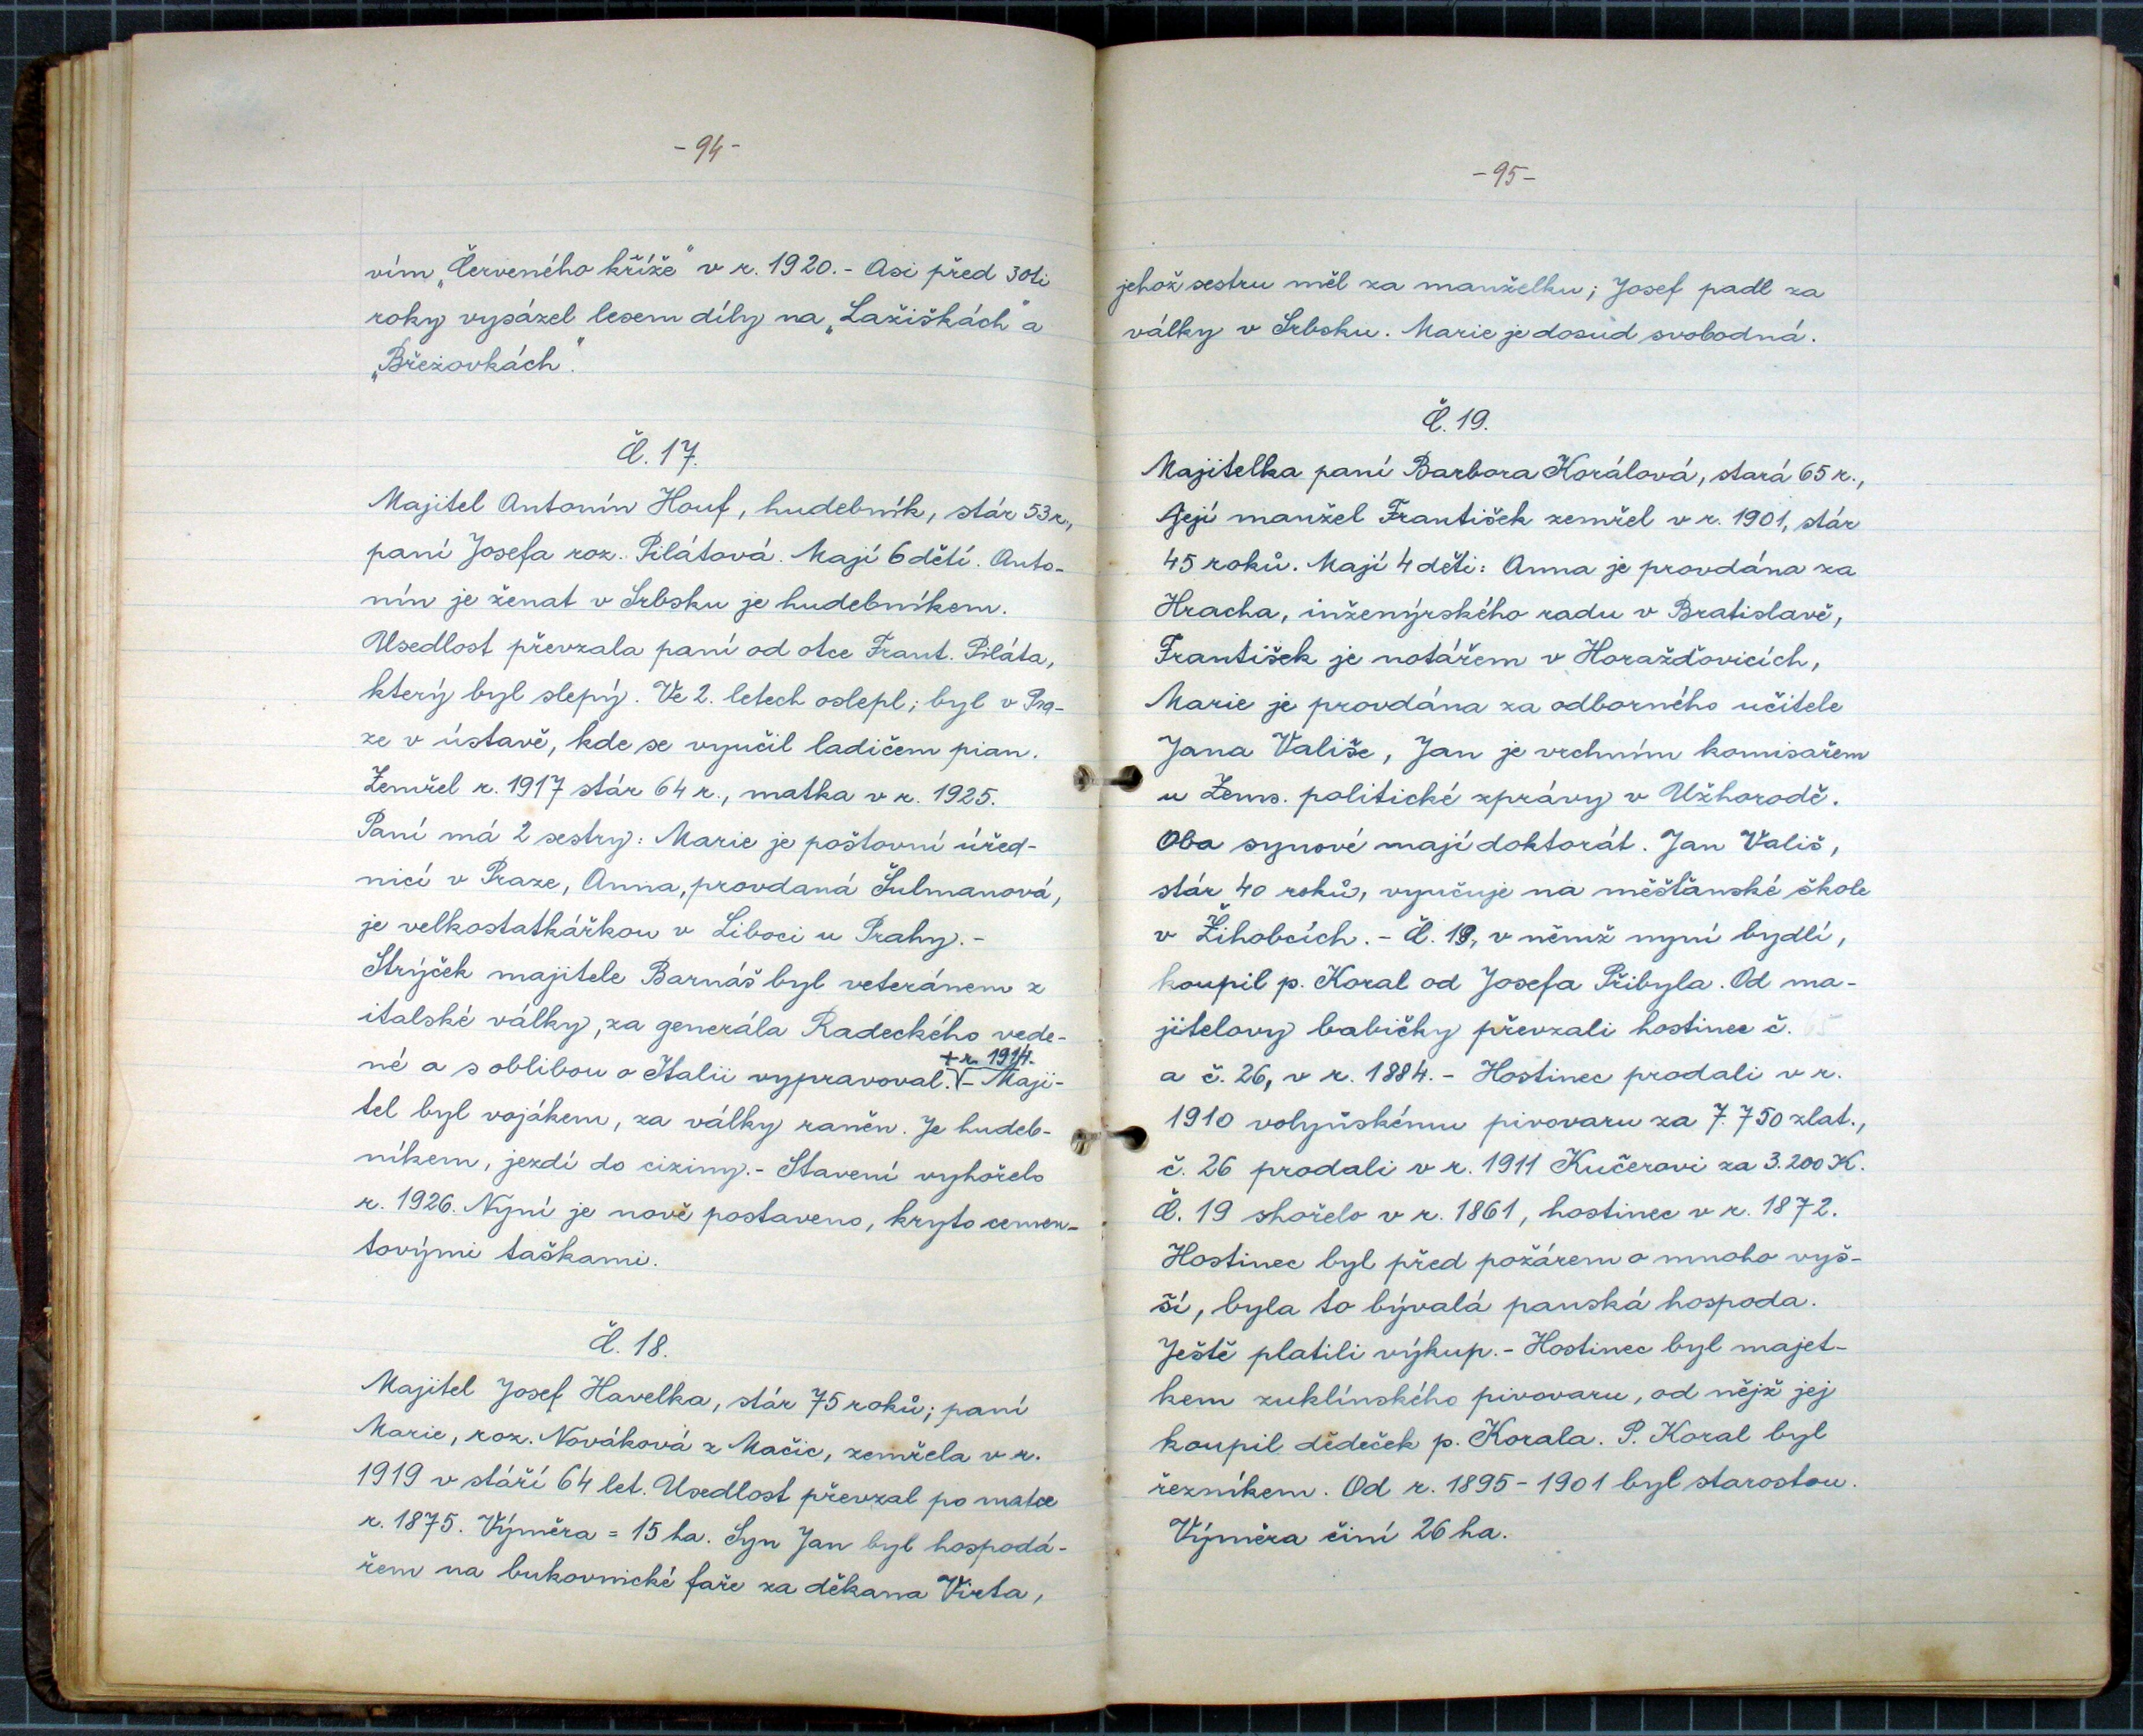 -94-
vím „Červeného kříže" v r. 1920.- Asi před 30ti
roky vysázel lesem díly na „Lažiškách" a
„Březovkách".
Č. 17.
Majitel Antonín Houf, hudebník, stár 53 r.,
paní Josefa roz. Pilátová. Mají 6 dětí. Anto-
nín je ženat v Srbsku je hudebníkem.
Usedlost převzala paní od otce Frant. Piláta,
který byl slepý. Ve 2. letech oslepl; byl v Pra-
ze v ústavě, kde se vyučil ladičem pian.
Zemřel r. 1917 stár 64 r., matka v r. 1925.
Paní má 2 sestry: Marie je poštovní úřed-
nicí v Praze, Anna, provdaná Šulmanová,
je velkostatkářkou v Liboci u Prahy.-
Strýček majitele Barnáš byl veteránem z
italské války, za generála Radeckého vede-
+ r. 1914.
né a s oblibou o Italii vypravoval. √- Maji-
tel byl vojákem, za války raněn. Je hudeb-
níkem, jezdí do ciziny.- Stavení vyhořelo
r. 1926. Nyní je nově postaveno, kryto cemen-
tovými taškami.
Č. 18.
Majitel Josef Havelka, stár 75 roků; paní
Marie, roz. Nováková z Mačic, zemřela v r.
1919 v stáří 64 let. Usedlost převzal po matce
r. 1875. Výměra = 15 ha. Syn Jan byl hospodá-
řem na bukovnické faře za děkana Virta,
-95-
jehož sestru měl za manželku; Josef padl za
války v Srbsku. Marie je dosud svobodná.
Č. 19.
Majitelka paní Barbora Korálová, stará 65 r.,
Její manžel František zemřel v r. 1901, stár
45 roků. Mají 4 děti: Anna je provdána za
Hracha, inženýrského radu v Bratislavě,
František je notářem v Horažďovicích,
Marie je provdána za odborného učitele
Jana Vališe, Jan je vrchním komisařem
u Zems. politické zprávy v Užhorodě.
Oba synové mají doktorát. Jan Vališ,
stár 40 roků, vyučuje na měšťanské škole
v Žihobcích.- Č. 19, v němž nyní bydlí,
koupil p. Koral od Josefa Přibyla. Od ma-
jitelovy babičky převzali hostinec č.
a č. 26, v r. 1884.- Hostinec prodali v r.
1910 volyňskému pivovaru za 7.750 zlat.,
č. 26 prodali v r. 1911 Kučerovi za 3.200 K.
Č. 19 shořelo v r. 1861, hostinec v r. 1872.
Hostinec byl před požárem o mnoho vyš-
ší, byla to bývalá panská hospoda.
Ještě platili výkup.- Hostinec byl majet-
kem zuklínského pivovaru, od nějž jej
koupil dědeček p. Korala. P. Koral byl
řezníkem. Od r. 1895-1901 byl starostou.
Výměra činí 26 ha.